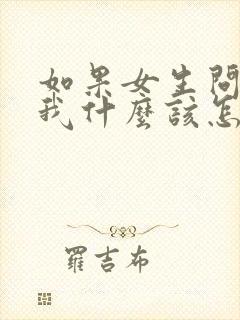 如果女生問
我什麼該怎
羅吉布